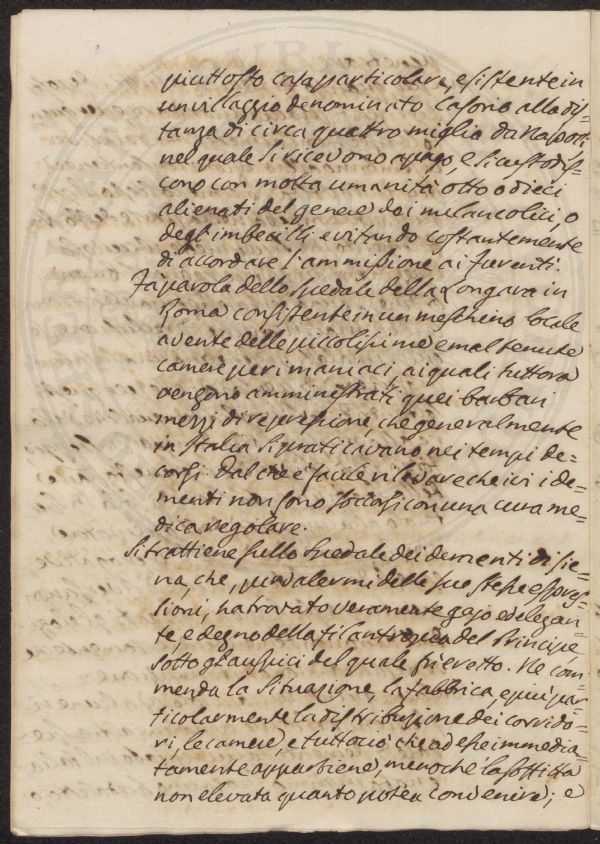 piuttosto casa particolare, esistente in
un villaggio denominato Casoria alla dis=
tanza di circa quattro miglia da Napoli
nel quale si ricevono a pago, e si custodis=
cono con molta umanità otto o dieci
alienati del genere dei melancolici, o
degl'imbecilli evitando costantemente
di accordare l'ammissione ai furenti.
Fa parola dello spedale della Longara in
Roma consistente in un meschino locale
avente delle piccolissime e mal tenute
camere per i maniaci, ai quali tuttora
vengono amministrati quei barbari
mezzi di repressione, che generalmente
in Italia si praticavano nei tempi de=
corsi. Dal che è facile rilevare che ivi i de=
menti non sono soccorsi con una cura me=
dica regolare.
Si trattiene sullo Spedale dei dementi di Sie=
na, che, per valermi delle sue stesse espres=
sioni, ha trovato veramente gajo ed elegan=
te, e degno della filantropia del Principe,
sotto gl'auspici del quale fu eretto. Ne com=
menda la situazione, la fabbrica, e più par=
ticolarmente la distribuzione dei corrido=
ri, le camere, e tuttociò che ad esse immedia=
tamente appartiene, menochè la soffitta
non elevata quanto potea convenire; e